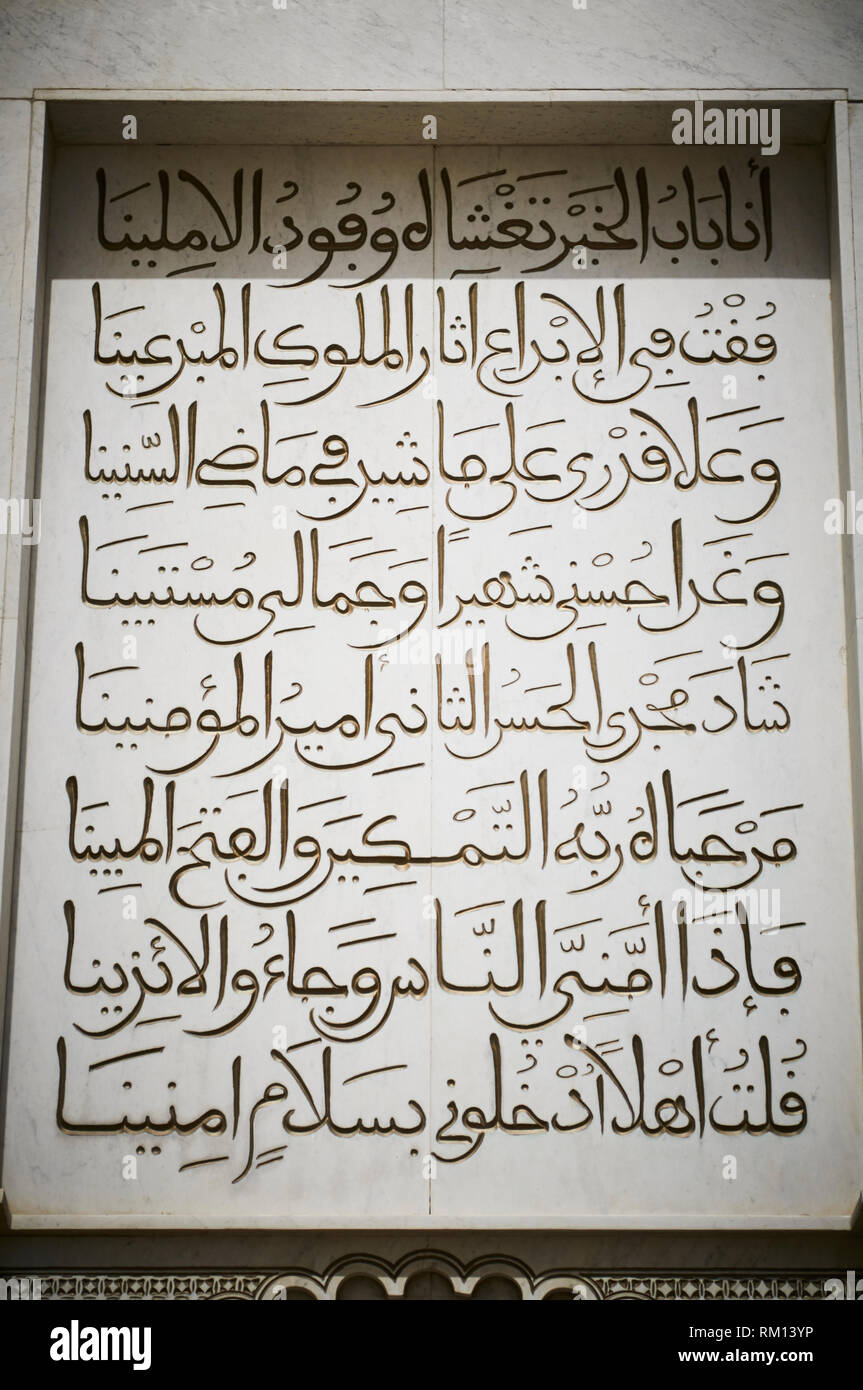 أَنا بَابُ الخَيْر تَغْشَاهُ وُفُودُ الامِلِينَا
فُقْتُ فِي الإبْدَاعِ اثَارَ المُلوكِ المُبْدِعِينَا
وَعَلَا قَدْرِى عَلَى مَا شِيدَ فِي مَاضِي السِّنِينَا
وَغَدَا حُسْنِي شَهِيرًا وَجَمَالِي مُسْتَبِينَا
شَادَ مَجْدِى الحَسَنُ الثَّانِي أَمِيرُ المُؤمِنِينَا
مَرْحَبَا هُ رَبُّهُ التَّمْكِينَ وَالفَتْحَ المُبِينَا
فَإذَا أَمَّنِيَ النَّاسُ وَجَاءُوا لائِذِينَا
قُلْتُ أَهْلًا أُدْخُلُونِي بِسَلَامٍ امِنِينَا
alamy
Image ID: RM13YP
www.alamy.com